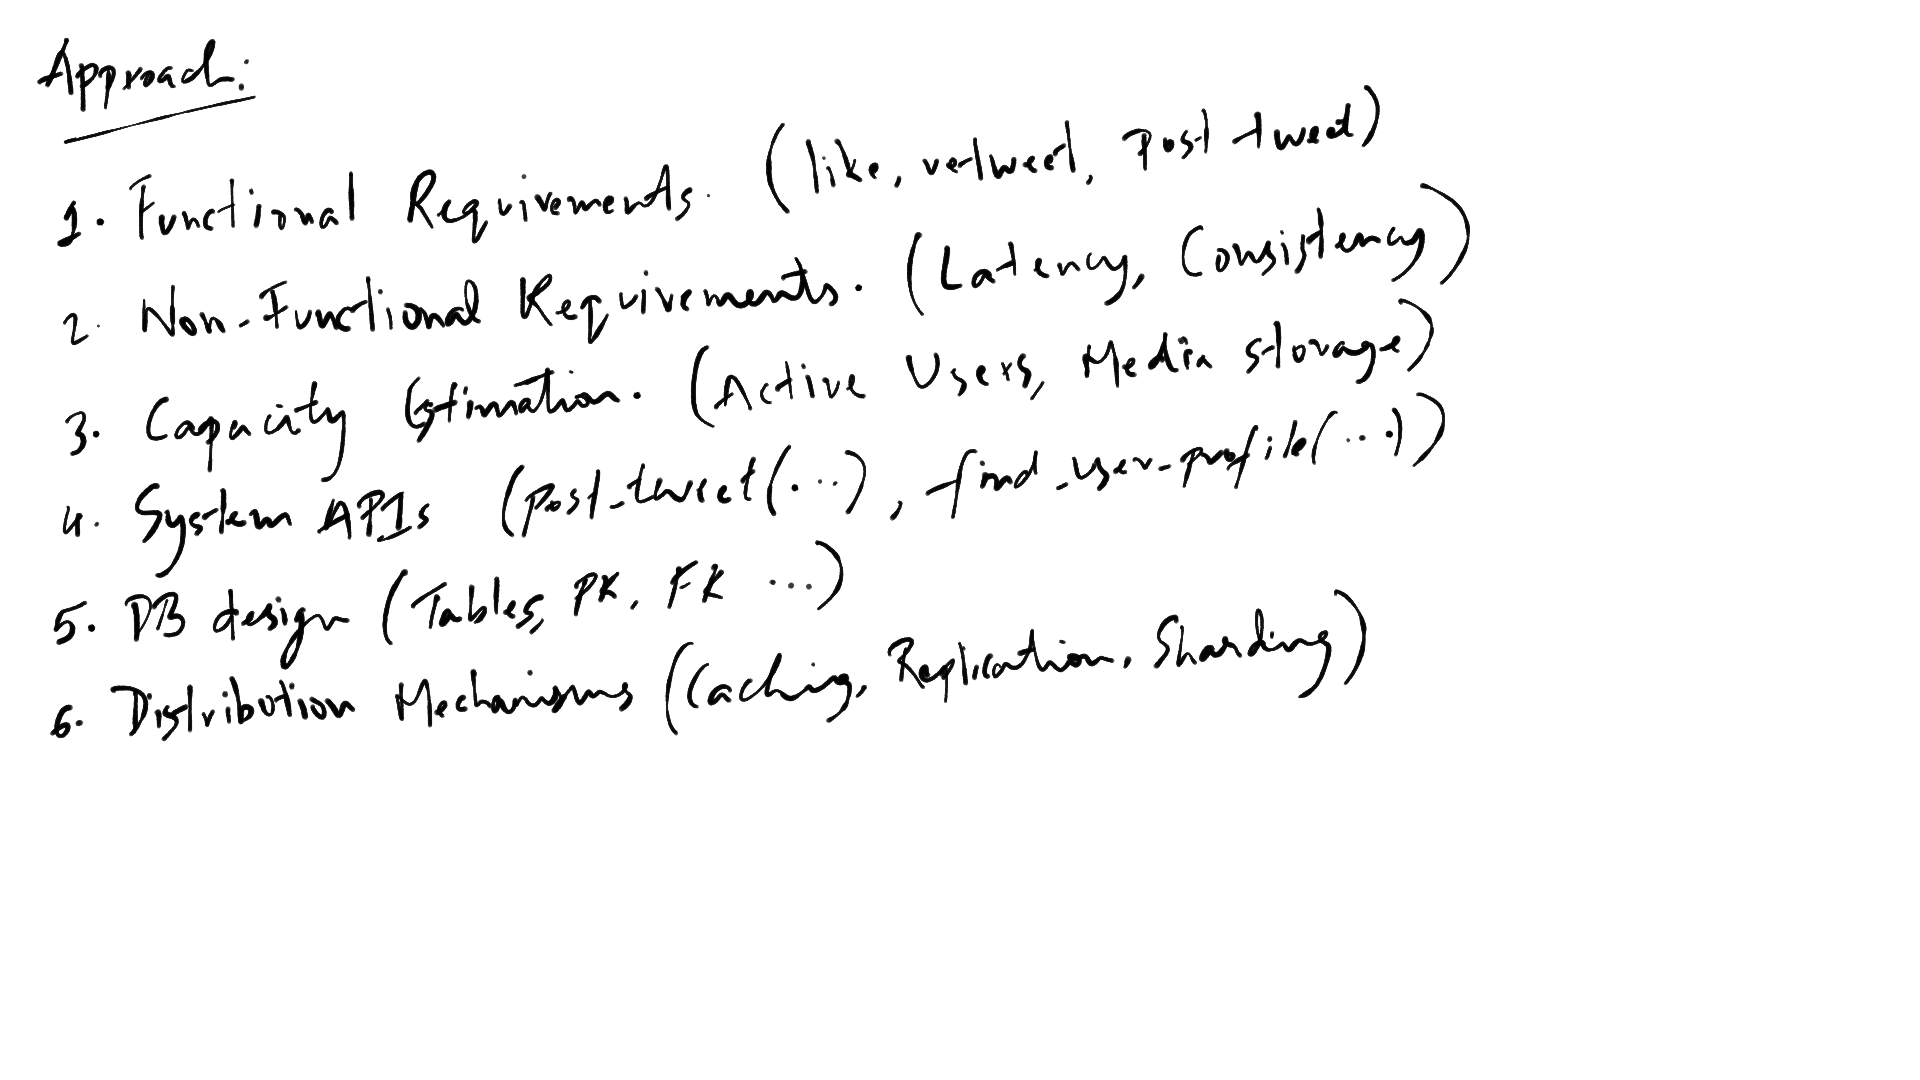 Approach:
1. Functional Requirements. (like, retweet, Post tweet)
2. Non-Functional Requirements. (Latency, Consistency)
3. Capacity Estimation. (Active Users, Media storage)
4. System APIs (post_tweet(...), find_user_profile(...))
5. DB design (Tables, PK, FK ...)
6. Distribution Mechanisms (Caching, Replication, Sharding)